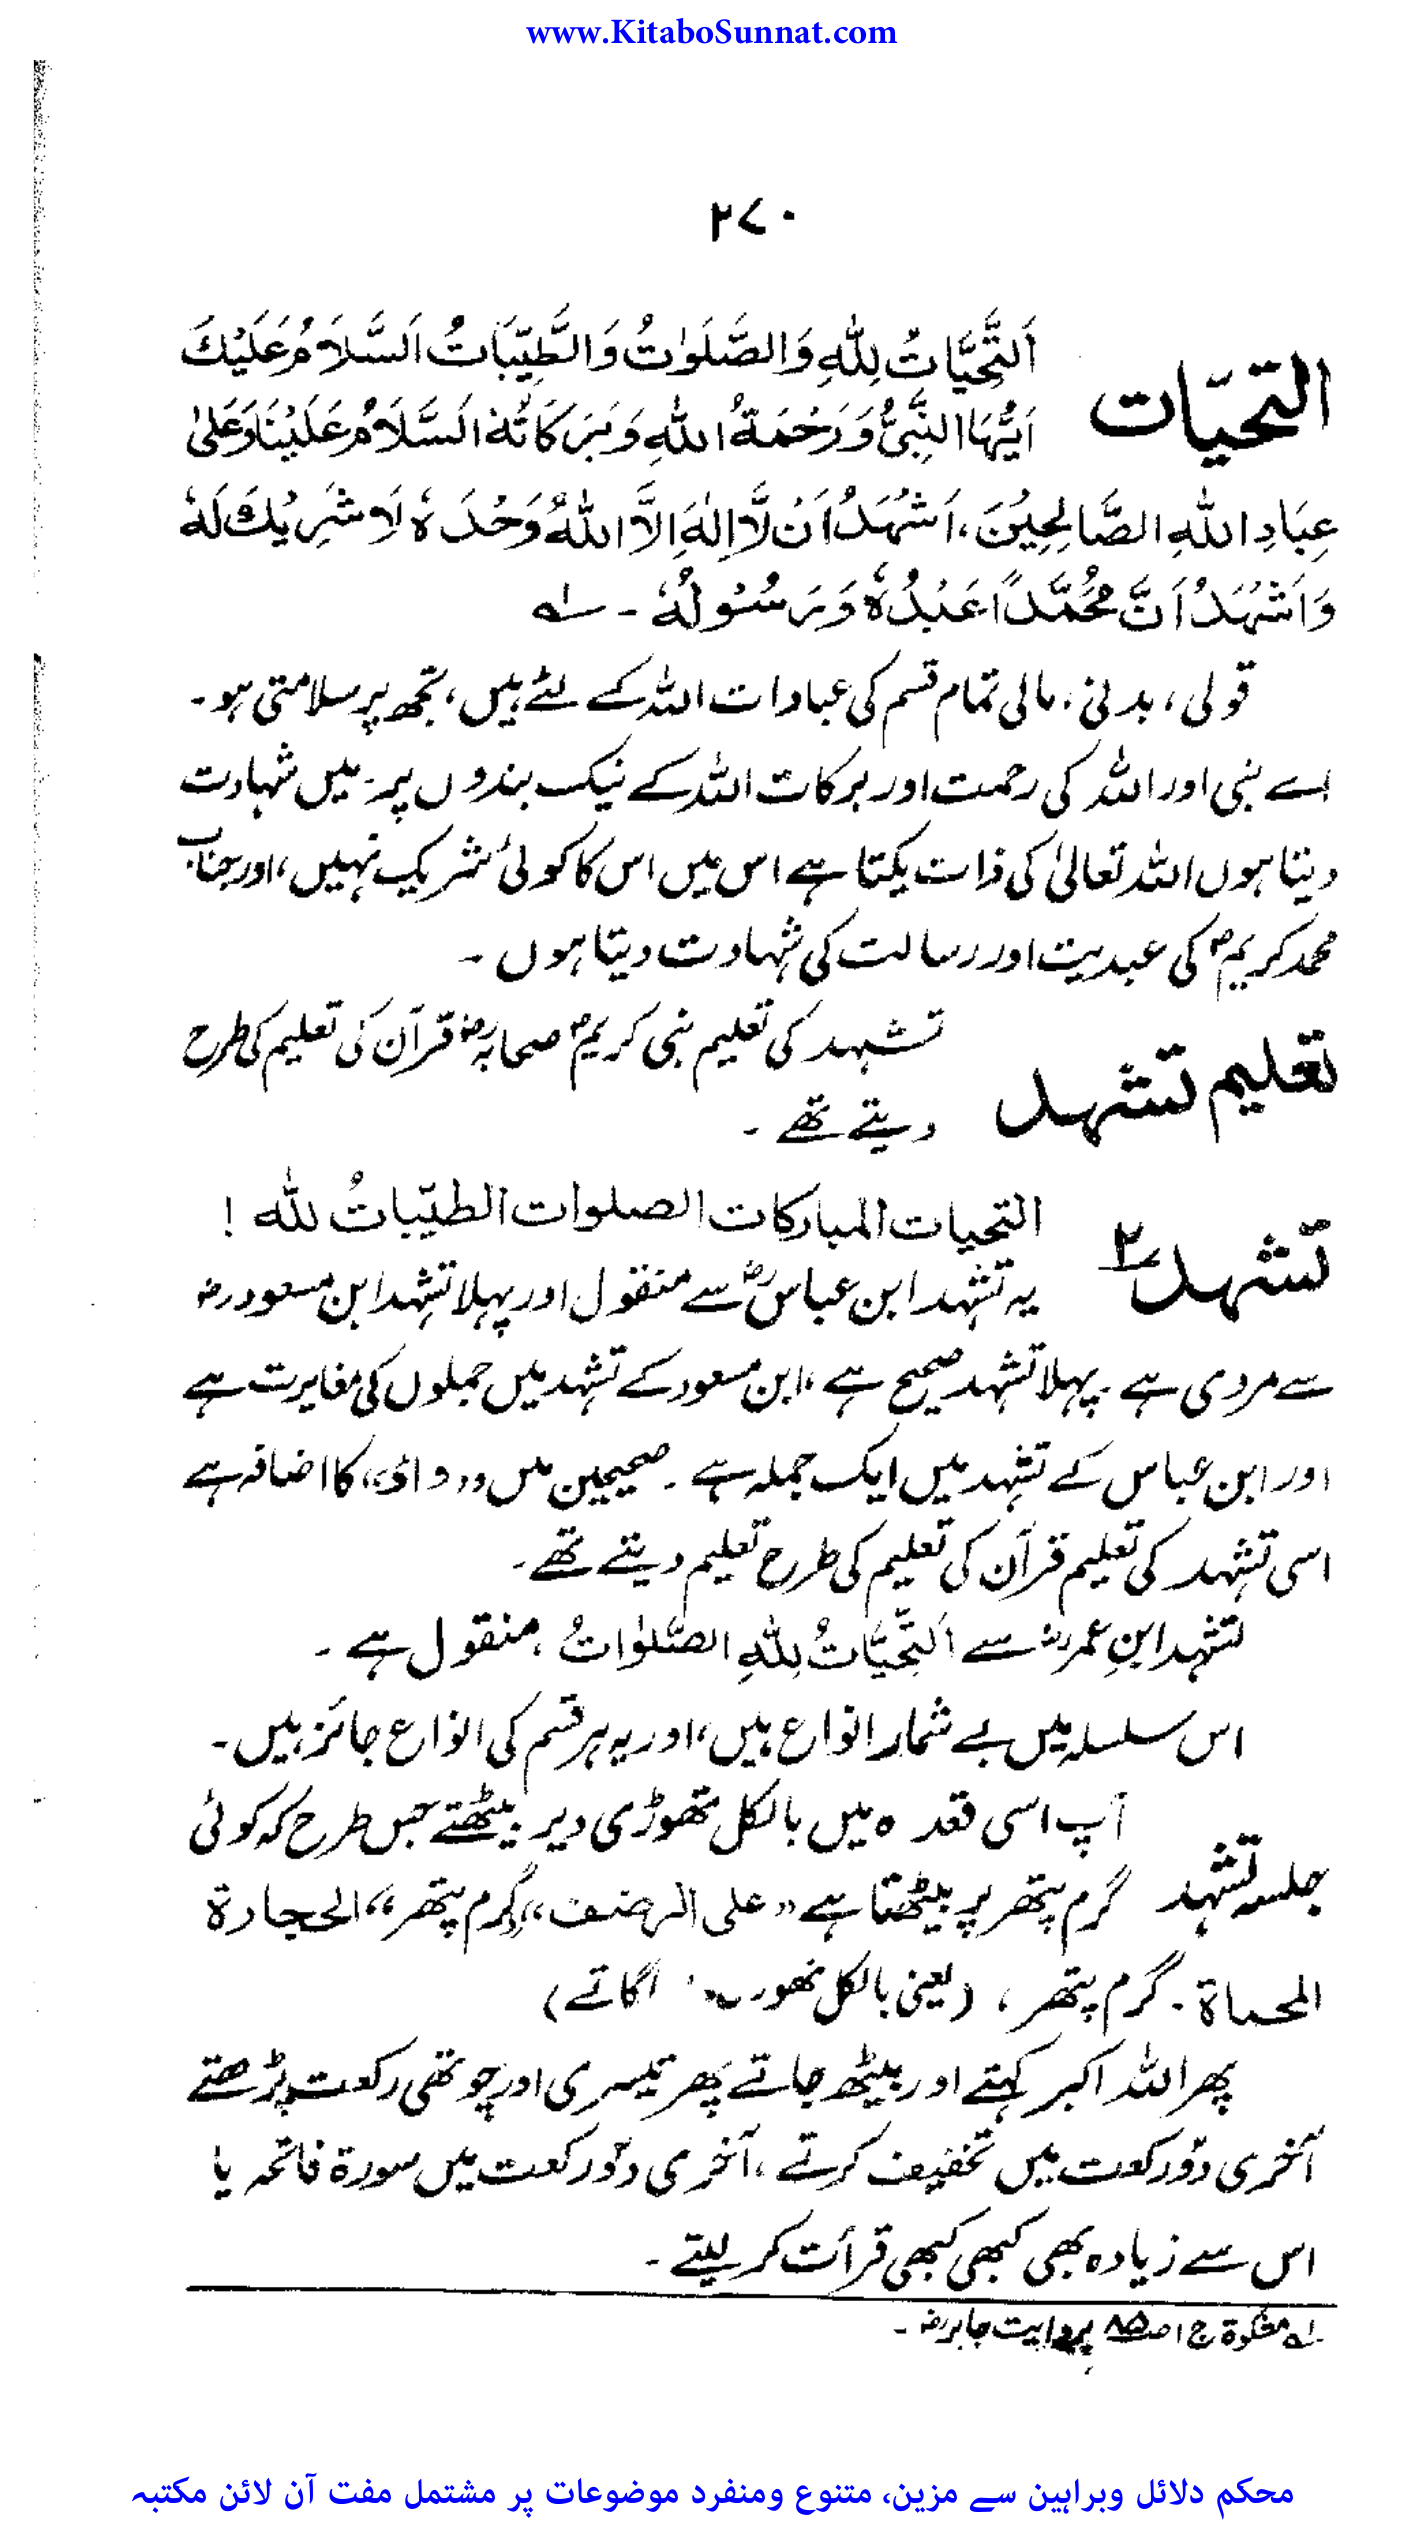 www.KitaboSunnat.com
۲۷۰
التحیّات
اَلتَّحِيَّاتُ لِلّٰهِ وَالصَّلَوٰتُ وَالطَّيِّبَاتُ اَلسَّلَامُ عَلَيْكَ
اَيُّهَا النَّبِيُّ وَرَحْمَةُ اللهِ وَبَرَكَاتُهٗ اَلسَّلَامُ عَلَيْنَا وَعَلىٰ
عِبَادِ اللهِ الصَّالِحِيْنَ، اَشْهَدُ اَنْ لَّا اِلٰهَ اِلَّا اللهُ وَحْدَهٗ لَا شَرِيْكَ لَهٗ
وَاَشْهَدُ اَنَّ مُحَمَّدًا عَبْدُهٗ وَرَسُوْلُهٗ ۔ ۱؎
قولی، بدنی، مالی تمام قسم کی عبادات اللہ کے لئے ہیں، تجھ پر سلامتی ہو۔
اے نبی اور اللہ کی رحمت اور برکات اللہ کے نیک بندوں پر۔ میں شہادت
دیتا ہوں اللہ تعالیٰ کی ذات یکتا ہے اس میں اس کا کوئی شریک نہیں، اور جناب
محمد کریمؐ کی عبدیت اور رسالت کی شہادت دیتا ہوں ۔
تعلیم تشہد
تشہد کی تعلیم نبی کریمؐ صحابہؓ قرآن کی تعلیم کی طرح
دیتے تھے ۔
تشہد ۲
التحیات المبارکات الصلوات الطیّباتُ للہ !
یہ تشہد ابن عباسؓ سے منقول اور پہلا تشہد ابن مسعودؓ
سے مروی ہے ۔ پہلا تشہد صحیح ہے، ابن مسعود کے تشہد میں جملوں کی مغایرت ہے
اور ابن عباس کے تشہد میں ایک جملہ ہے ۔ صحیحین میں ,, واؤ،، کا اضافہ ہے
اسی تشہد کی تعلیم قرآن کی تعلیم کی طرح تعلیم دیتے تھے ۔
تشہد ابنِ عمرؓ سے اَلتَّحِيَّاتُ لِلّٰهِ الصَّلوٰاتُ ، منقول ہے ۔
اس سلسلہ میں بے شمار انواع ہیں، اور یہ ہر قسم کی انواع جائز ہیں ۔
جلسہ تشہد
آپ اسی قعدہ میں بالکل تھوڑی دیر بیٹھتے جس طرح کہ کوئی
گرم پتھر پر بیٹھتا ہے ,, علی الرضف،، گرم پتھر ،، الحجارة
المحماة ۔ گرم پتھر ، (یعنی بالکل لگاتے)
پھر اللہ اکبر کہتے اور بیٹھ جاتے پھر تیسری اور چوتھی رکعت پڑھتے
آخری دو رکعت میں تخفیف کرتے ، آخری دو رکعت میں سورۃ فاتحہ یا
اس سے زیادہ بھی کبھی کبھی قرأت کر لیتے ۔
۱؎ مشکوۃ ج ۱ ص ۸۵ بروایت جابرؓ ۔
محکم دلائل وبراہین سے مزین، متنوع ومنفرد موضوعات پر مشتمل مفت آن لائن مکتبہ